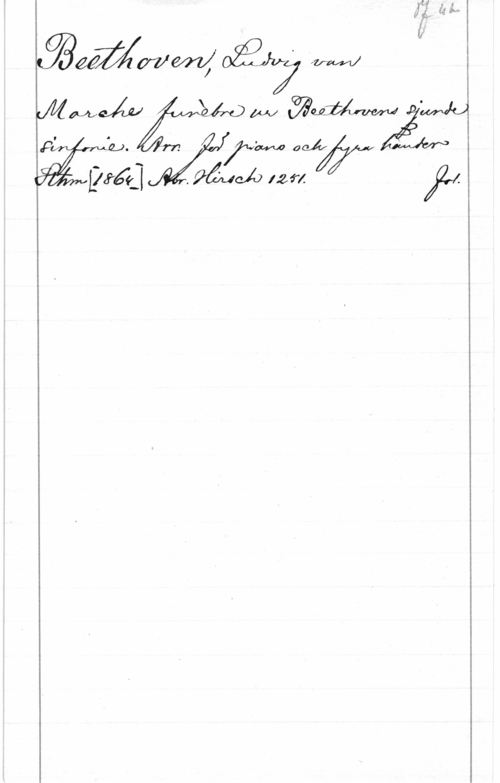 Beethoven, Ludvig van
Marche funèbre ur Beethovens sjunde
sinfonie. Arr. för piano och fyra händer
Sthm [1864] Abr. Hirsch 1251. fol.